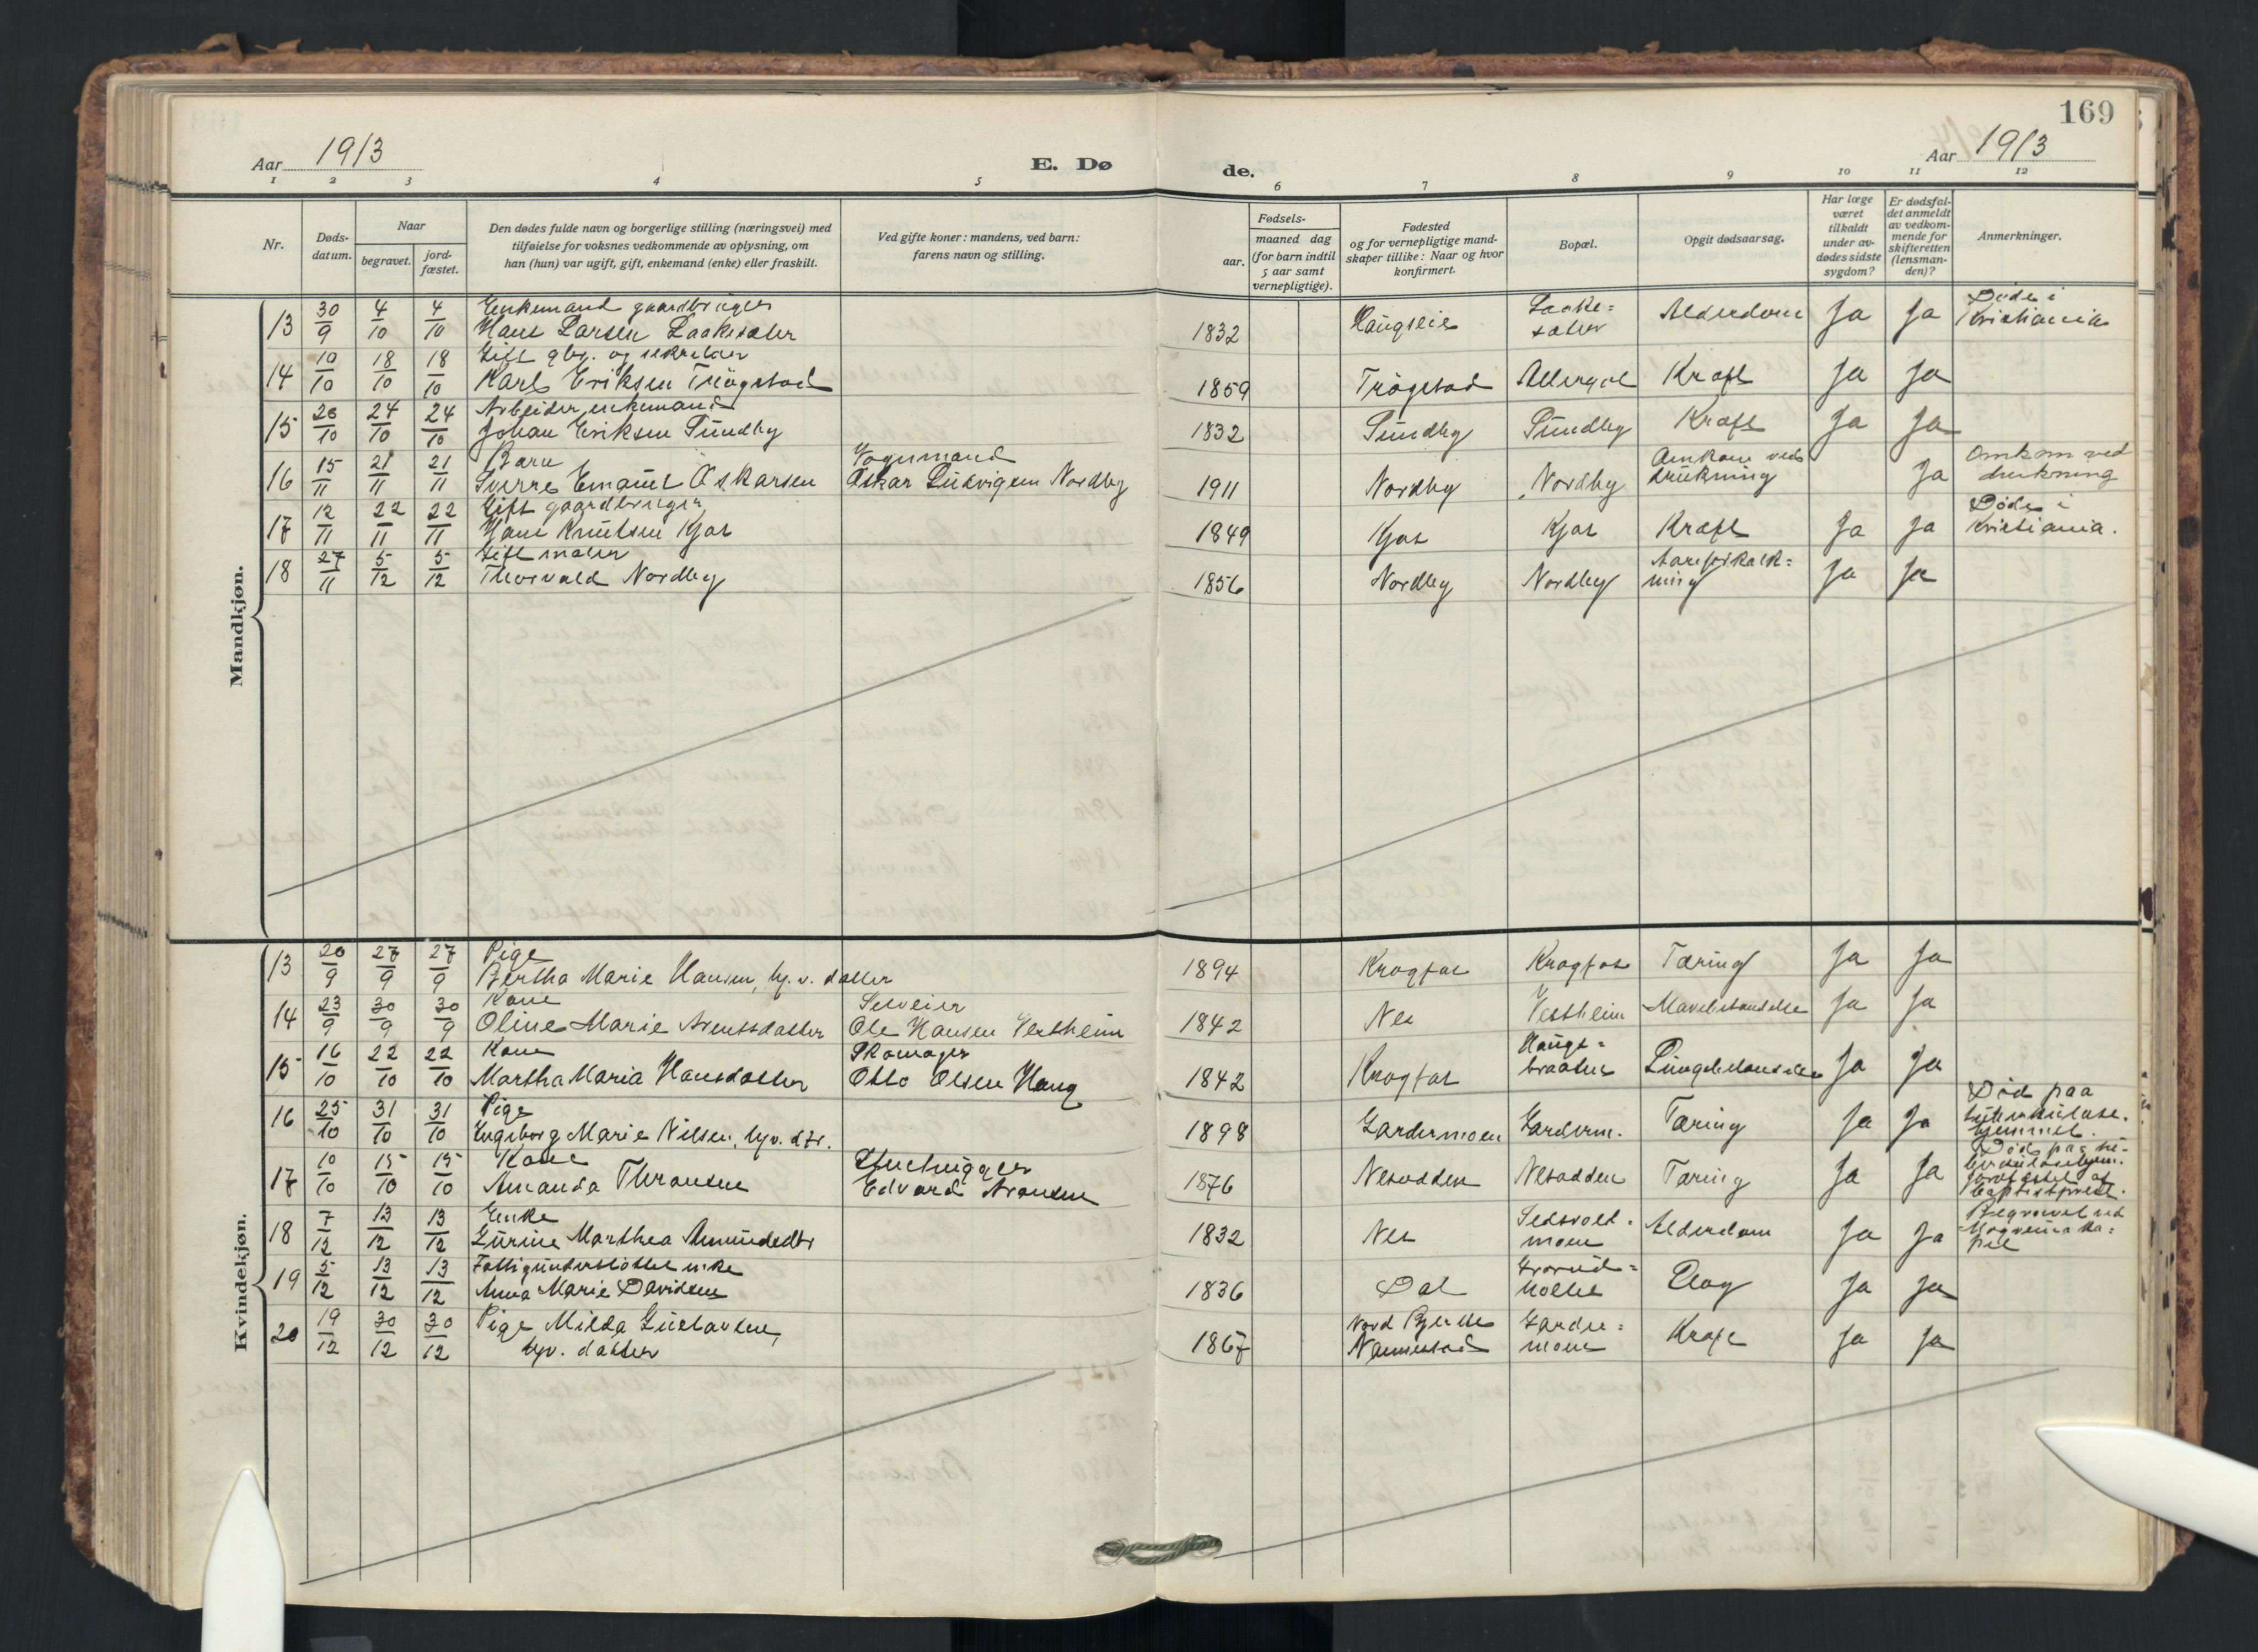 169
Aar 1913
E. Døde.
Aar 1913
1 2 3 4 5 6 7 8 9 10 11 12
Nr.
Døds-datum.
Naar
begravet.
jord-fæstet.
Den dødes fulde navn og borgerlige stilling (næringsvei) med
tilføielse for voksnes vedkommende av oplysning, om
han (hun) var ugift, gift, enkemand (enke) eller fraskilt.
Ved gifte koner: mandens, ved barn:
farens navn og stilling.
Fødsels-
aar.
maaned dag
(for barn indtil
5 aar samt
vernepligtige).
Fødested
og for vernepligtige mand-
skaper tillike: Naar og hvor
konfirmert.
Bopæl.
Opgit dødsaarsag.
Har læge
været
tilkaldt
under av-
dødes sidste
sygdom?
Er dødsfal-
det anmeldt
av vedkom-
mende for
skifteretten
(lensman-
den)?
Anmerkninger.
Mandkjøn.
13 30/9 4/10 4/10 Enkemand gaardbruger
Hans Larsen Laakesæter 1832 Haugseie Laake=
sæter Alderdom Ja Ja Døde i
Kristiania
14 10/10 18/10 18/10 Gift gbr. og
Karl Eriksen Trögstad 1859 Trögstad Allergot Kræft Ja Ja
15 20/10 24/10 24/10 Arbeider, enkemand
Johan Eriksen Sundby 1832 Sundby Sundby Kræft Ja Ja
16 15/11 21/11 21/11 Barn Vognmand
Sverre Emanuel Oskarsen Oskar Ludvigsen Nordby 1911 Nordby Nordby Omkom ved
drukning Ja Omkom ved
drukning
17 12/11 22/11 22/11 Gift gaardbruger
Hans Knutsen Kjos 1849 Kjos Kjos Kræft Ja Ja Døde i
Kristiania.
18 27/11 5/12 5/12 Gift maler
Thorvald Nordby 1856 Nordby Nordby Aareforkalk=
ning Ja Ja
Kvindekjøn.
13 20/9 27/9 27/9 Pige
Bertha Marie Hansen, hj.v. datter 1894 Krogfos Krogfos Tæring Ja Ja
14 23/9 30/9 30/9 Kone Selveier
Oline Marie Arentsdatter Ole Hansen Vestheim 1842 Nes Vestheim Mavebetændelse Ja Ja
15 16/10 22/10 22/10 Kone Skomager
Martha Maria Hansdatter Otto Olsen Haug 1842 Krogfos Haugs=
braaten Lungebetændelse Ja Ja
16 25/10 31/10 31/10 Pige
Engeborg Marie Nilsen, hjv. dtr. 1898 Gardermoen Garderm. Tæring Ja Ja Død paa
tuberkulose.
hjemmet.
17 10/10 15/10 15/10 Kone Stenhugger
Amanda Thransen Edvard Aronsen 1876 Nesodden Nesodden Tæring Ja Ja Død paa tu-
berkulosehjem.
Jordfæstet af
baptistprest.
18 7/12 13/12 13/12 Enke
Gurine Marthea Amundsdtr 1832 Nes Sessvold=
moen Alderdom Ja Ja Begravet ved
Mogreina ka=
pel
19 5/12 13/12 13/12 Fattigunderstöttet enke
Anna Marie Davidsen 1836 Dal
Slag Ja Ja
20 19/12 30/12 30/12 Pige Milda Gustavsen,
hjv. datter 1867 Nord
Nannestad Garder=
moen Kræft Ja Ja